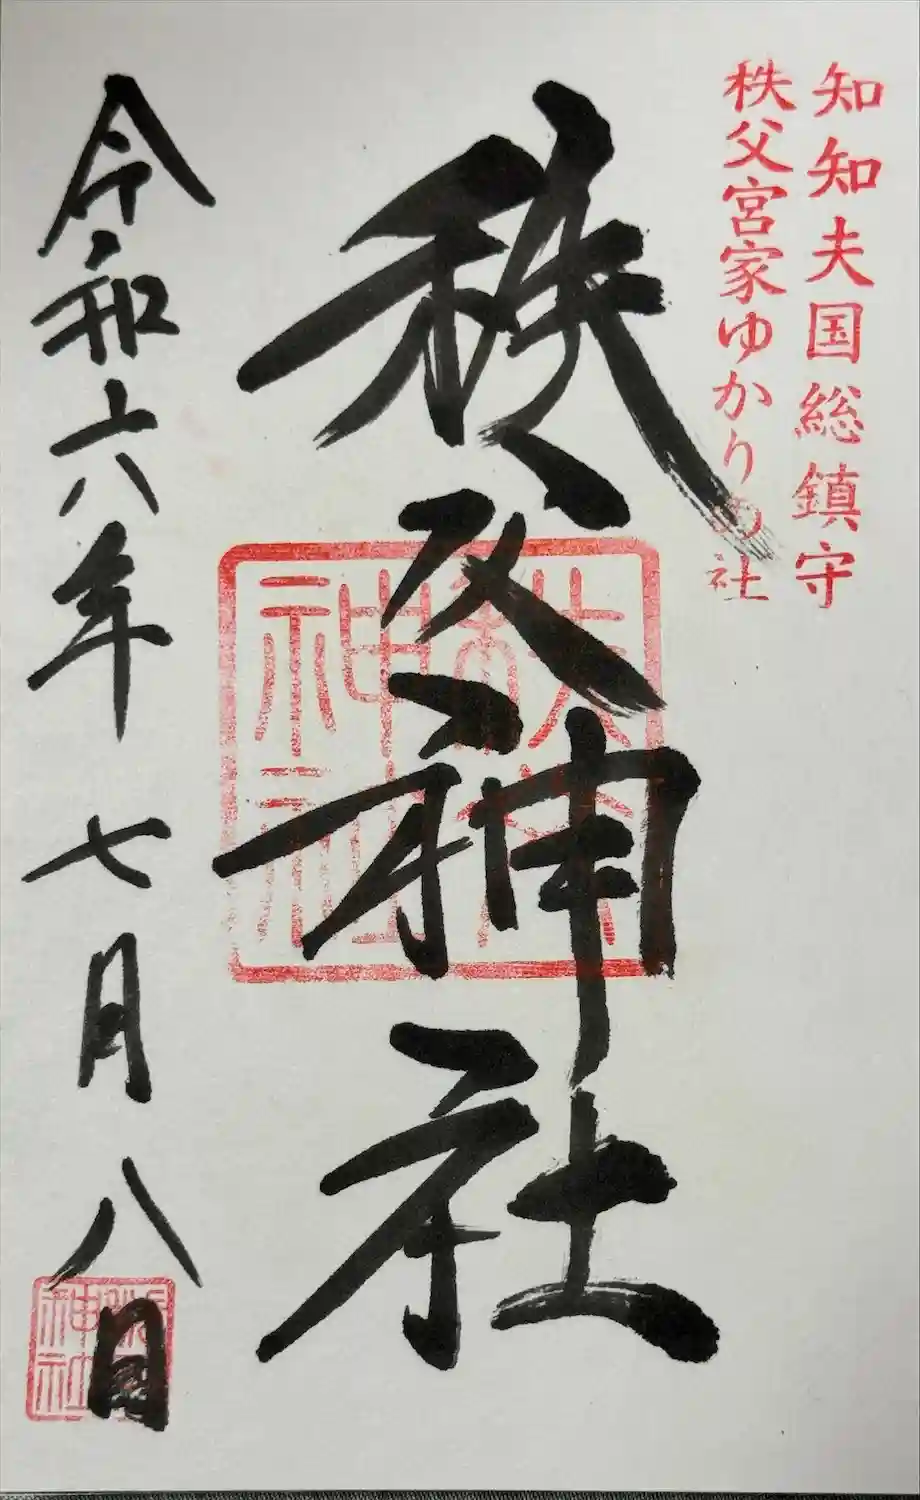 知知夫国総鎮守
秩父宮家ゆかりの社
秩父神社
秩父神社
令和六年七月八日